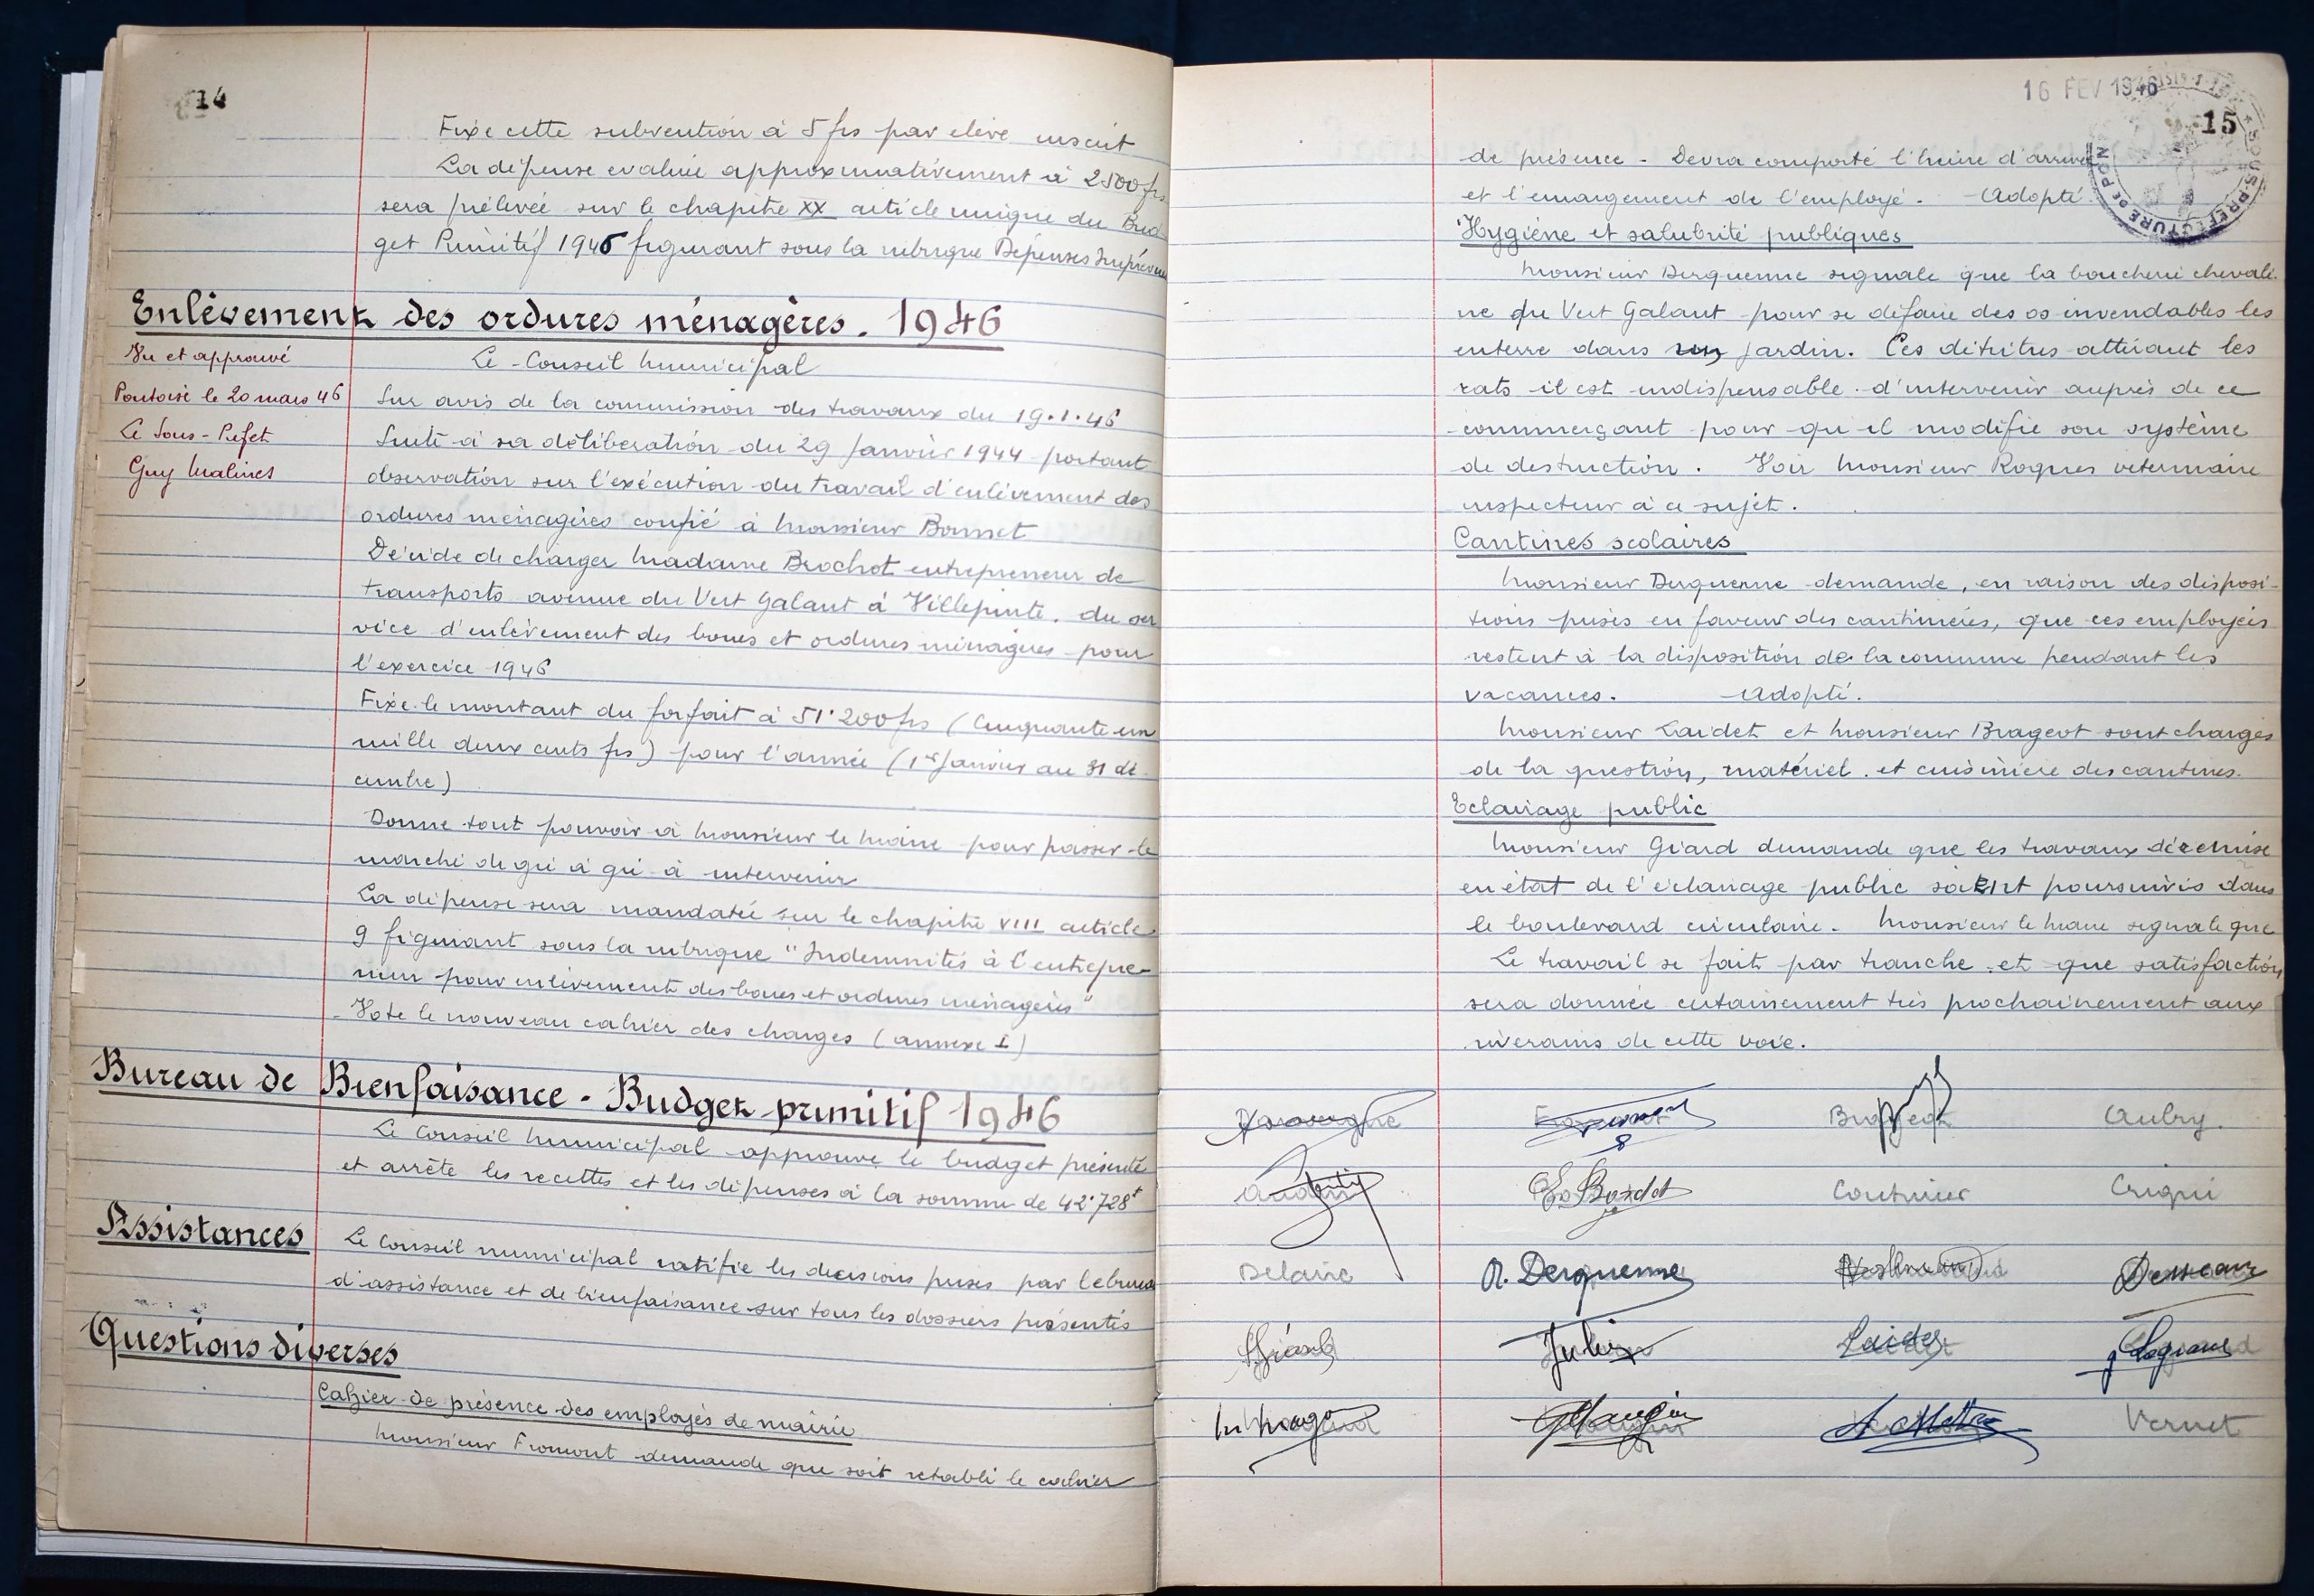 14
Fixe cette subvention à 5 frs par elève inscrit
La dépense evaluée approximativement à 2500 frs
sera prélevée sur le chapitre XX article unique du Bud
get Primitif 1946 figurant sous la rubrique Dépenses Imprévues
Enlèvement des ordures ménagères. 1946
Vu et approuvé
Pontoise le 20 mars 46
Le Sous-Préfet
Guy Malines
Le Conseil Municipal
Sur avis de la commission des travaux du 19.1.46
Suite à sa délibération du 29 Janvier 1944 portant
observation sur l'exécution du travail d'enlèvement des
ordures ménagères confié à Monsieur Bonnet
Décide de charger Madame Brochot entrepreneur de
transports avenue du Vert Galant à Villepinte. du ser
vice d'enlèvement des boues et ordures ménagères pour
l'exercice 1946
Fixe le montant du forfait à 51.200 frs (Cinquante un
mille deux cents frs) pour l'année (1er Janvier au 31 dé
cembre)
Donne tout pouvoir à Monsieur le Maire pour passer le
marché de gré à gré à intervenir
La dépense sera mandatée sur le chapitre VIII article
9 figurant sous la rubrique "Indemnités à l'entrepre-
neur pour enlèvement des boues et ordures ménagères"
Vote le nouveau cahier des charges (annexe I)
Bureau de Bienfaisance - Budget primitif 1946
Le Conseil Municipal approuve le budget présenté
et arrête les recettes et les dépenses à la somme de 42.728f
Assistances
Le Conseil municipal ratifie les décisions prises par le bureau
d'assistance et de bienfaisance sur tous les dossiers présentés
Questions diverses
Cahier de présence des employés de mairie
Monsieur Fromont demande que soit rétabli le cahier
16 FEV 1946
15
SOUS-PREFECTURE DE PON
de présence - Devra comporté l'heure d'arrivée
et l'émargement de l'employé. - Adopté.
Hygiène et salubrité publiques
Monsieur Derquenne signale que la boucherie chevali
ne du Vert Galant pour se défaire des os invendables les
enterre dans son jardin. Ces détritus attirant les
rats il est indispensable d'intervenir auprès de ce
commerçant pour qu'il modifie son système
de destruction. Voir Monsieur Roques veterinaire
inspecteur à ce sujet.
Cantines scolaires
Monsieur Derquenne demande, en raison des disposi-
tions prises en faveur des cantinières, que ces employées
restent à la disposition de la commune pendant les
vacances. Adopté.
Monsieur Laidet et Monsieur Brageot sont chargés
de la question, matériel et cuisinière des cantines.
Eclairage public
Monsieur Giard demande que les travaux de remise
en état de l'éclairage public soient poursuivis dans
le boulevard circulaire. Monsieur le Maire signale que
Le travail se fait par tranche et que satisfaction
sera donnée certainement très prochainement aux
riverains de cette voie.
Brageot Aubry.
Couturier Crigui
Delaric R. Derquenne Desseaux
Giard Julien Laidet Legrand
Mangin Vernet